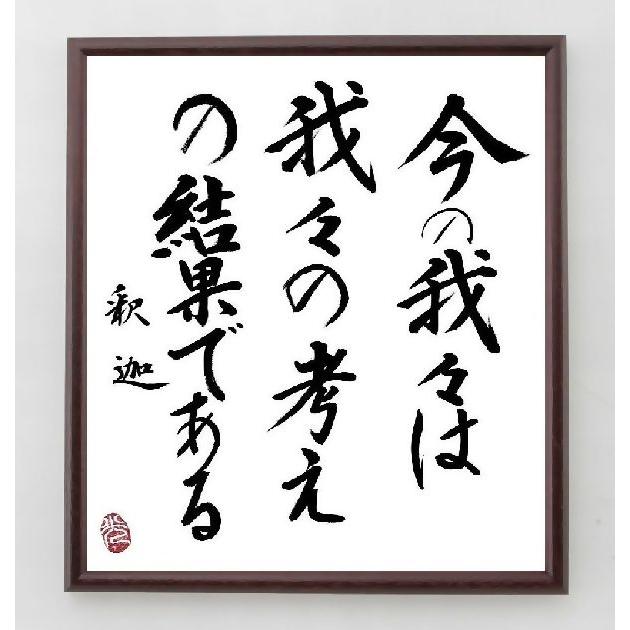 今の我々は
我々の考え
の結果である
釈迦